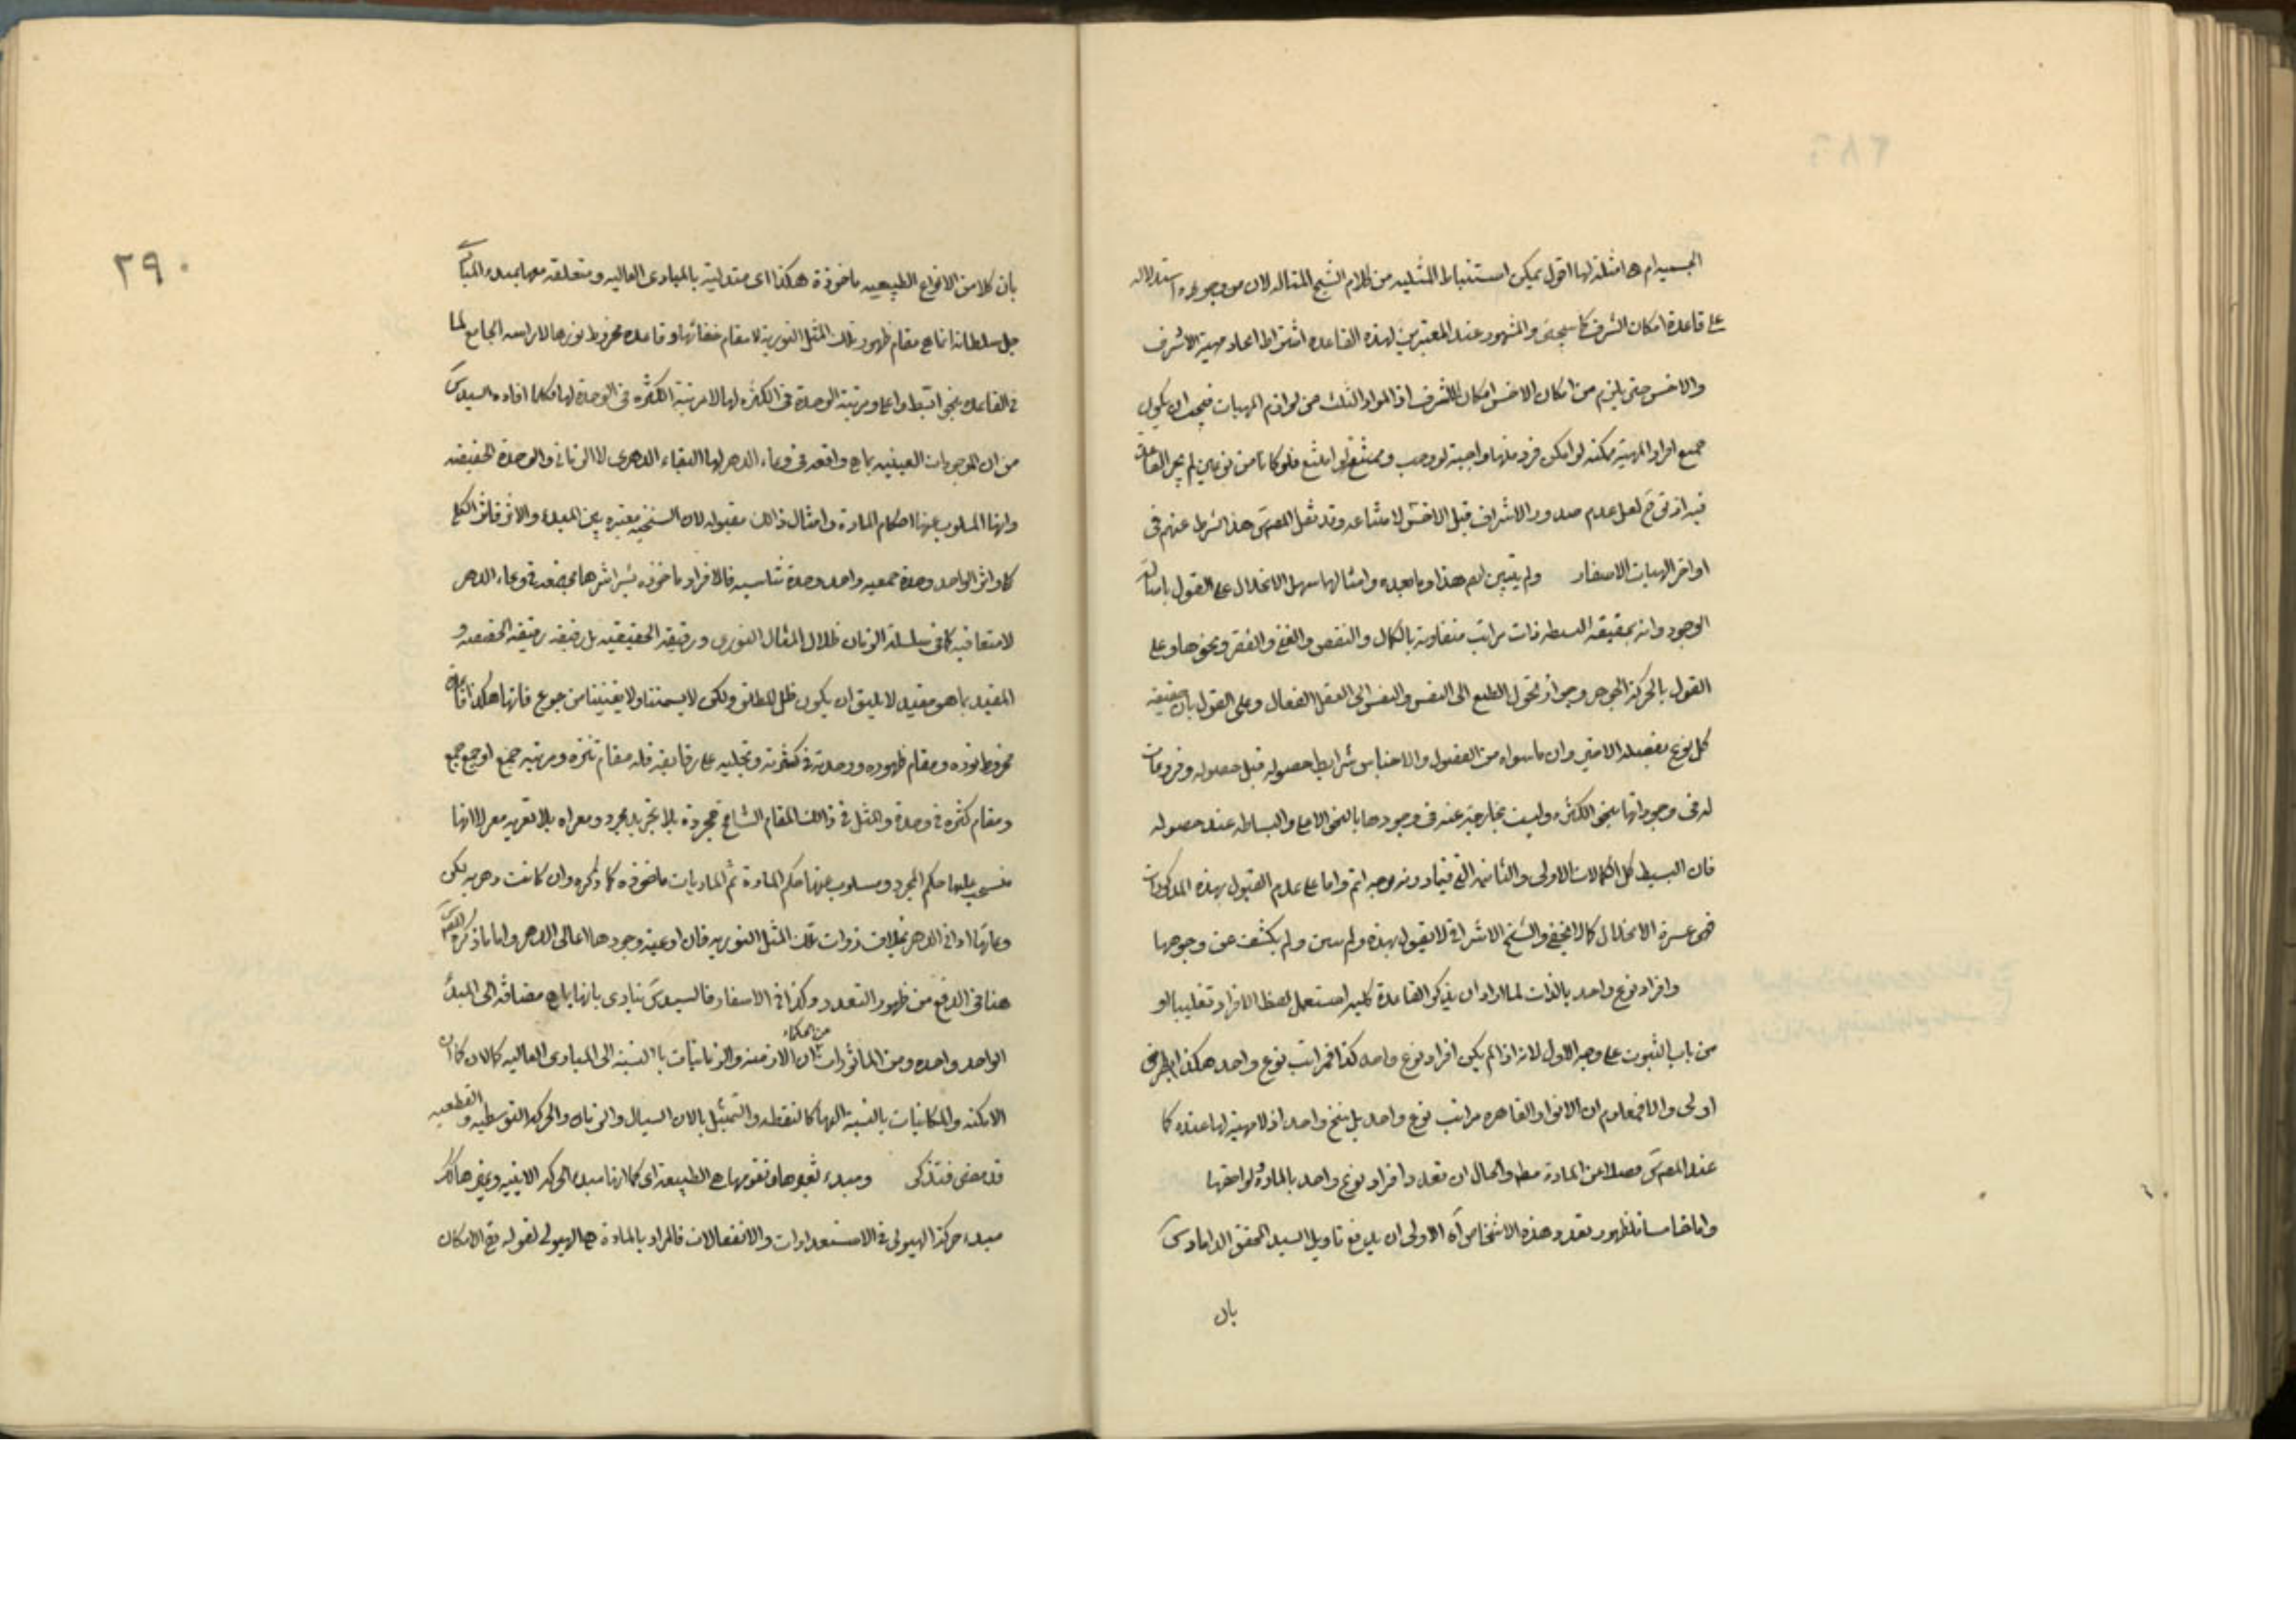 الجسمية ام هى امثلة لها اقول يمكن استنباط المثلية من كلام الشيخ المتاله لان من وجوه استدلاله
على قاعدة امكان الاشرف كما سيجئ والمشهور عند المعتبرين لهذه القاعدة اشتراط اتحاد مهية الاشرف
والاخس حتى يلزم من امكان الاخس امكان الاشرف اذ المواد الثلث من لوازم المهيات فيجب ان يكون
جميع افراد المهية ممكنة لو امكن فرد منها واجبة لو وجب وممتنعة لو امتنع فلو كانا من نوعين لم يجر القاعدة
فيه اذ لعل عدم صدور الاشراف قبل الاخس لامتناعه وقد نقل المص هذا الشرط عنهم فى
اواخر الهيات الاسفار ولم يتبين ثم هذا وما بعده وامثالها سهل الانحلال على القول باصالة
الوجود وانه بحقيقته البسيطة ذات مراتب متفاوتة بالكمال والنقص والغنى والفقر ونحوها وعلى
القول بالحركة الجوهرية وجواز تحول الطبع الى النفس والنفس الى العقل الفعال وعلى القول بان حقيقة
كل نوع بفصله الاخير وان ما سواه من الفصول والاجناس شرايط حصوله قبل حصوله وفروعات
له فى وجوداتها بنحو الكثرة وليست بخارجة عنه فى وجودها بالنحو الاعلى والبساطة عند حصوله
فان البسيط كل الكمالات الاولى والثانية التى فيما دونه بوجه اتم واما على عدم القبول بهذه المذكورات
فهى عسرة الانحلال كما لا يخفى والشيخ الاشراقى لا يقول بهذه ولم يبين ولم يكشف عن وجوهها
وافراد نوع واحد بالذات لما اراد ان يذكر القاعدة كلية استعمل لفظ الافراد تغليبا او
من باب الثبوت على وجه الاول لانه اذا لم يكن افراد نوع واحد كذا فمراتب نوع واحد هكذا بطريق
اولى والا فمعلوم ان الانوار القاهرة مراتب نوع واحد بل سنخ واحد اذ لا مهية لها عنده كما
عند المص فضلا من المادة مط والحال ان تعدد افراد نوع واحد بالمادة ولواحقها
واما خامسا فلظهور تعدد هذه الاشخاص آه الاولى ان يدفع تاويل السيد المحقق الداماد س
بان
٢٩٠
بان كلا من الانواع الطبيعية ماخوذة هكذا اى متدلية بالمبادى العالية ومتعلقة معها بمبدء المبادى
جل سلطانه انما هى مقام ظهور تلك المثل النورية لا مقام خفائها وقاعدة مخروط نورها لا راسه الجامع لما
فى القاعدة بنحو ابسط واعلى ومرتبة الوحدة فى الكثرة لها لا مرتبة الكثرة فى الوحدة لها وكلما افاده السيد س
من ان الموجودات العينية بما هى واقعة فى وعاء الدهر لها البقاء الدهرى لا الزمانى والوحدة الحقيقة
وانها المسلوب عنها احكام المادة وامثال ذلك مقبولة لان السنخية معتبرة بين المبدء والاثر فاثر الكلى
كلى واثر الواحد وحدة جمعية واحد وحدة تناسبه فالافراد ماخوذة بشراشرها مجتمعة فى وعاء الدهر
لا متعاقبة كما فى سلسلة الزمان ظلال المثال النورى ورقيقة الحقيقة بل رقيقة رقيقة الحقيقة و
المقيد بما هو مقيد لا يليق ان يكون ظل المطلق ولكن لا يسمننا ولا يغنينا من جوع فانها هكذا قاعدة
مخروط نوره ومقام ظهوره ووحدته فى كثرته وتجليه على رقايقه فله مقام تنزه ومرتبة جمع او جمع جمع
ومقام كثرة فى وحدة والمثل فى ذلك المقام الشامخ مجردة بلا تجريد مجرد ومعراه بلا تعرية معر لا انها
منسحب عليها حكم المجرد ومسلوب عنها حكم المادة ثم الماديات ماخوذة كما ذكره وان كانت دهرية لكن
وعائها ادانى الدهر بخلاف ذوات تلك المثل النورية فان اوعية وجودها اعالى الدهر واما ما ذكره المص س
هنا فى الدفع من ظهور التعدد وكذا فى الاسفار فالسيد س ينادى بانها بما هى مضافة الى المبدء
الواحد واحدة ومن الماثورات من الحكماء ان الازمنة والزمانيات بالنسبة الى المبادى العالية كالان كما ان
الامكنة والمكانيات بالنسبة اليها كالنقطة والتمثيل بالان السيال والزمان والحركة التوسطية والقطعية
قد مضى فتذكر ومبدء نحوها وتقومها هى الطبيعة اى كما انها مبدء الحركة الاينية وغيرها كك
مبدء حركة الهيولى فى الاستعدادات والانفعالات فالمراد بالمادة هى الهيولى لقوله مع الامكان